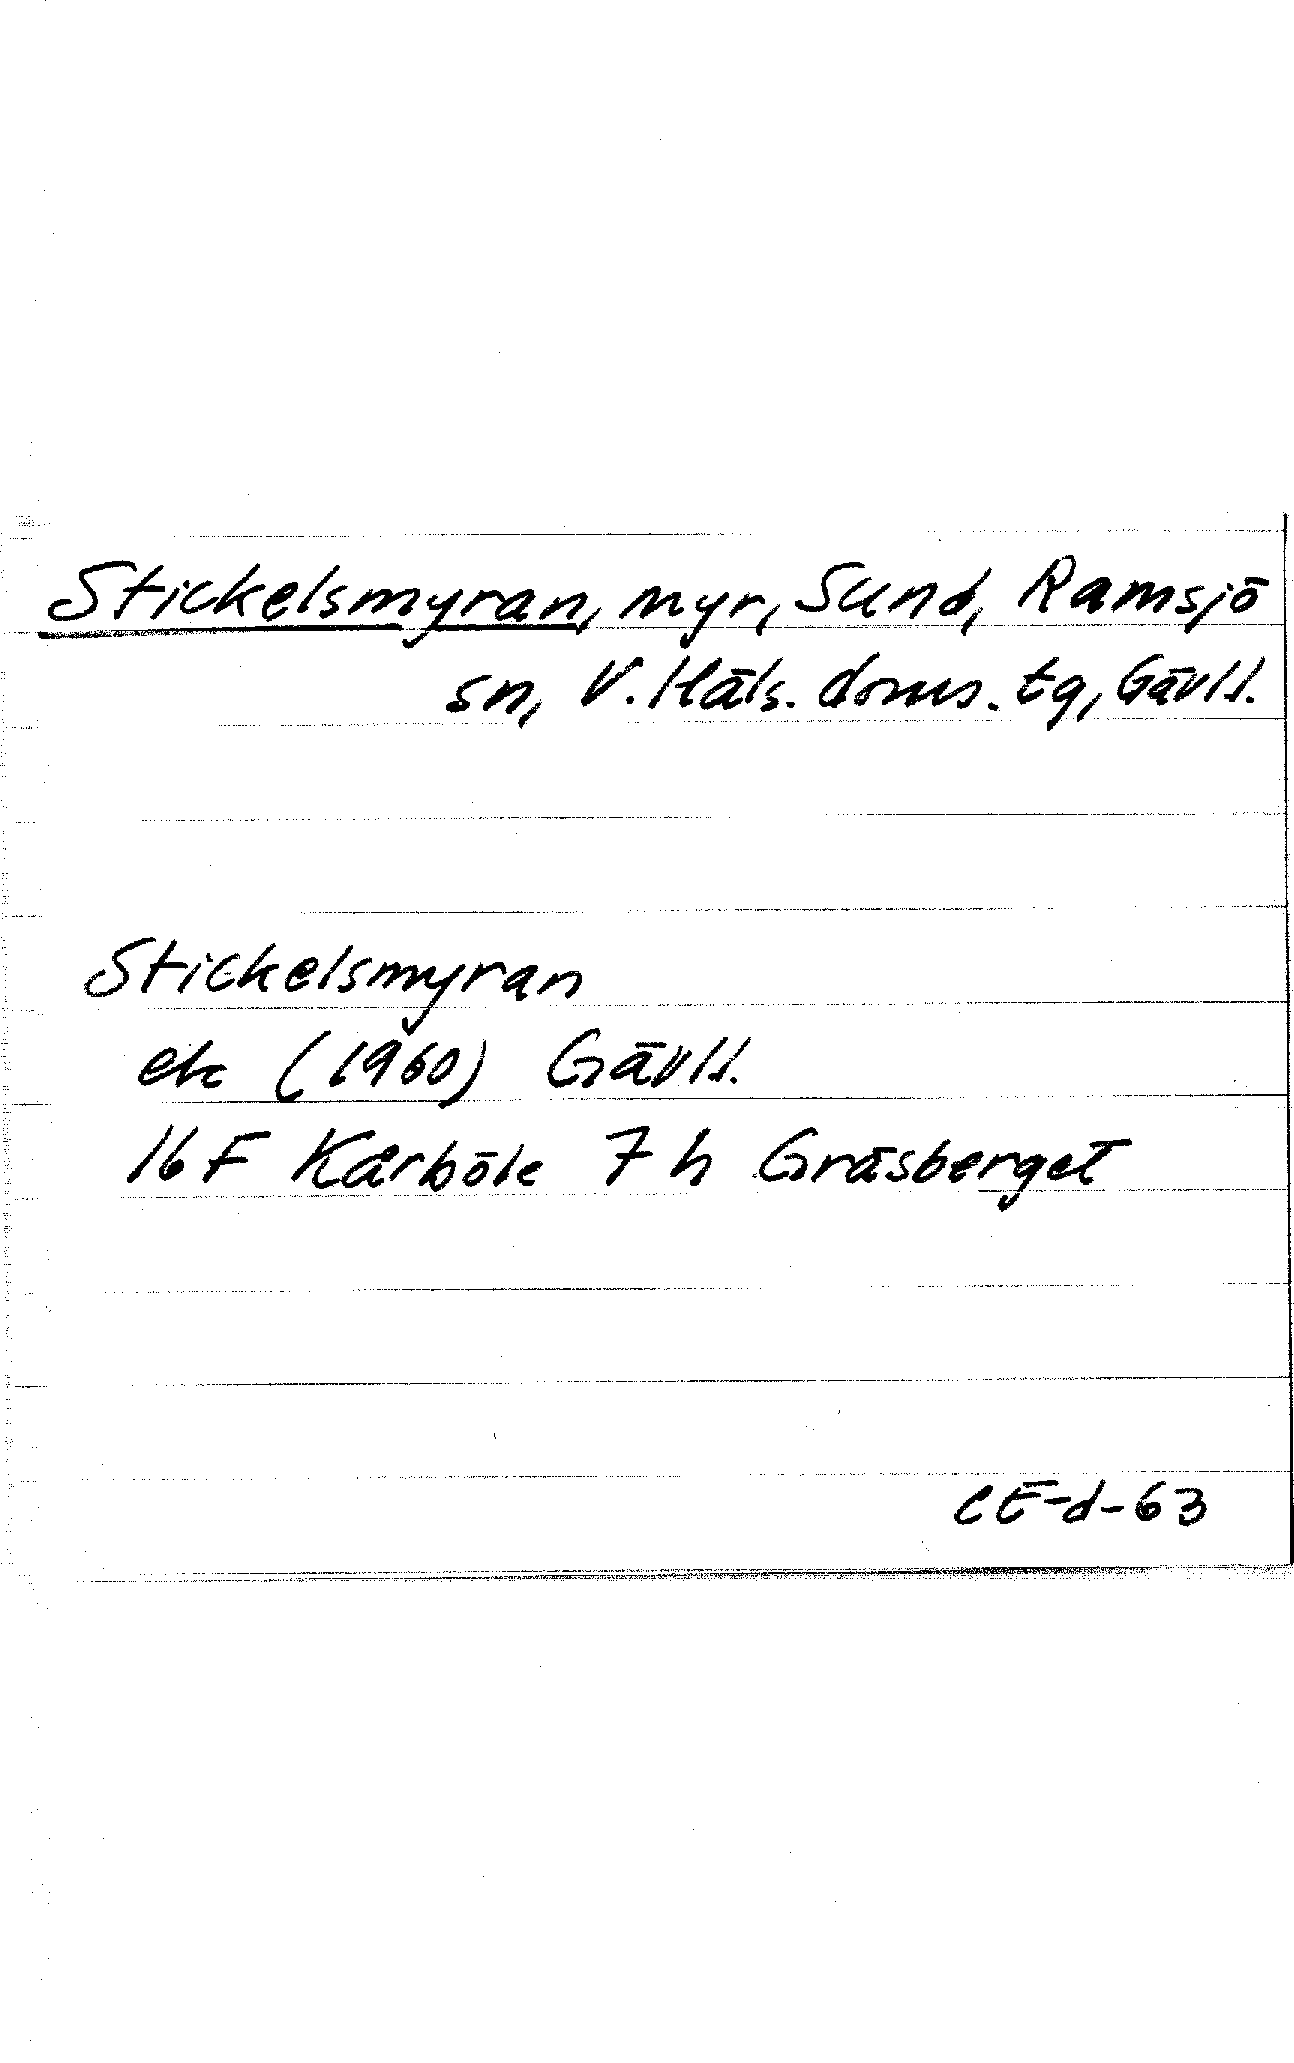 Stickelsmyran, myr, Sund, Ramsjö
sn, V. Häls. doms. tg, Gävl.l.
Stickelsmyran
ek (1960) Gävl.l.
16F Kårböle 7h Gräsberget
CE-d-63